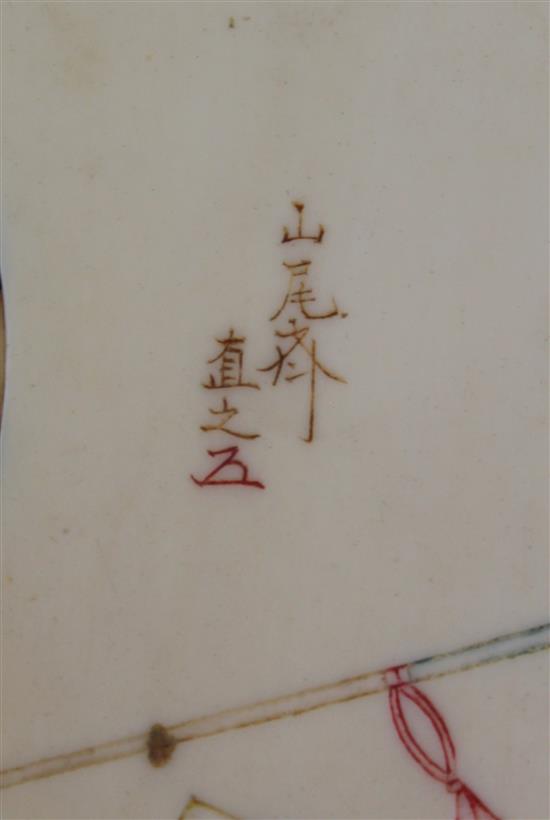 山尾
直之
五